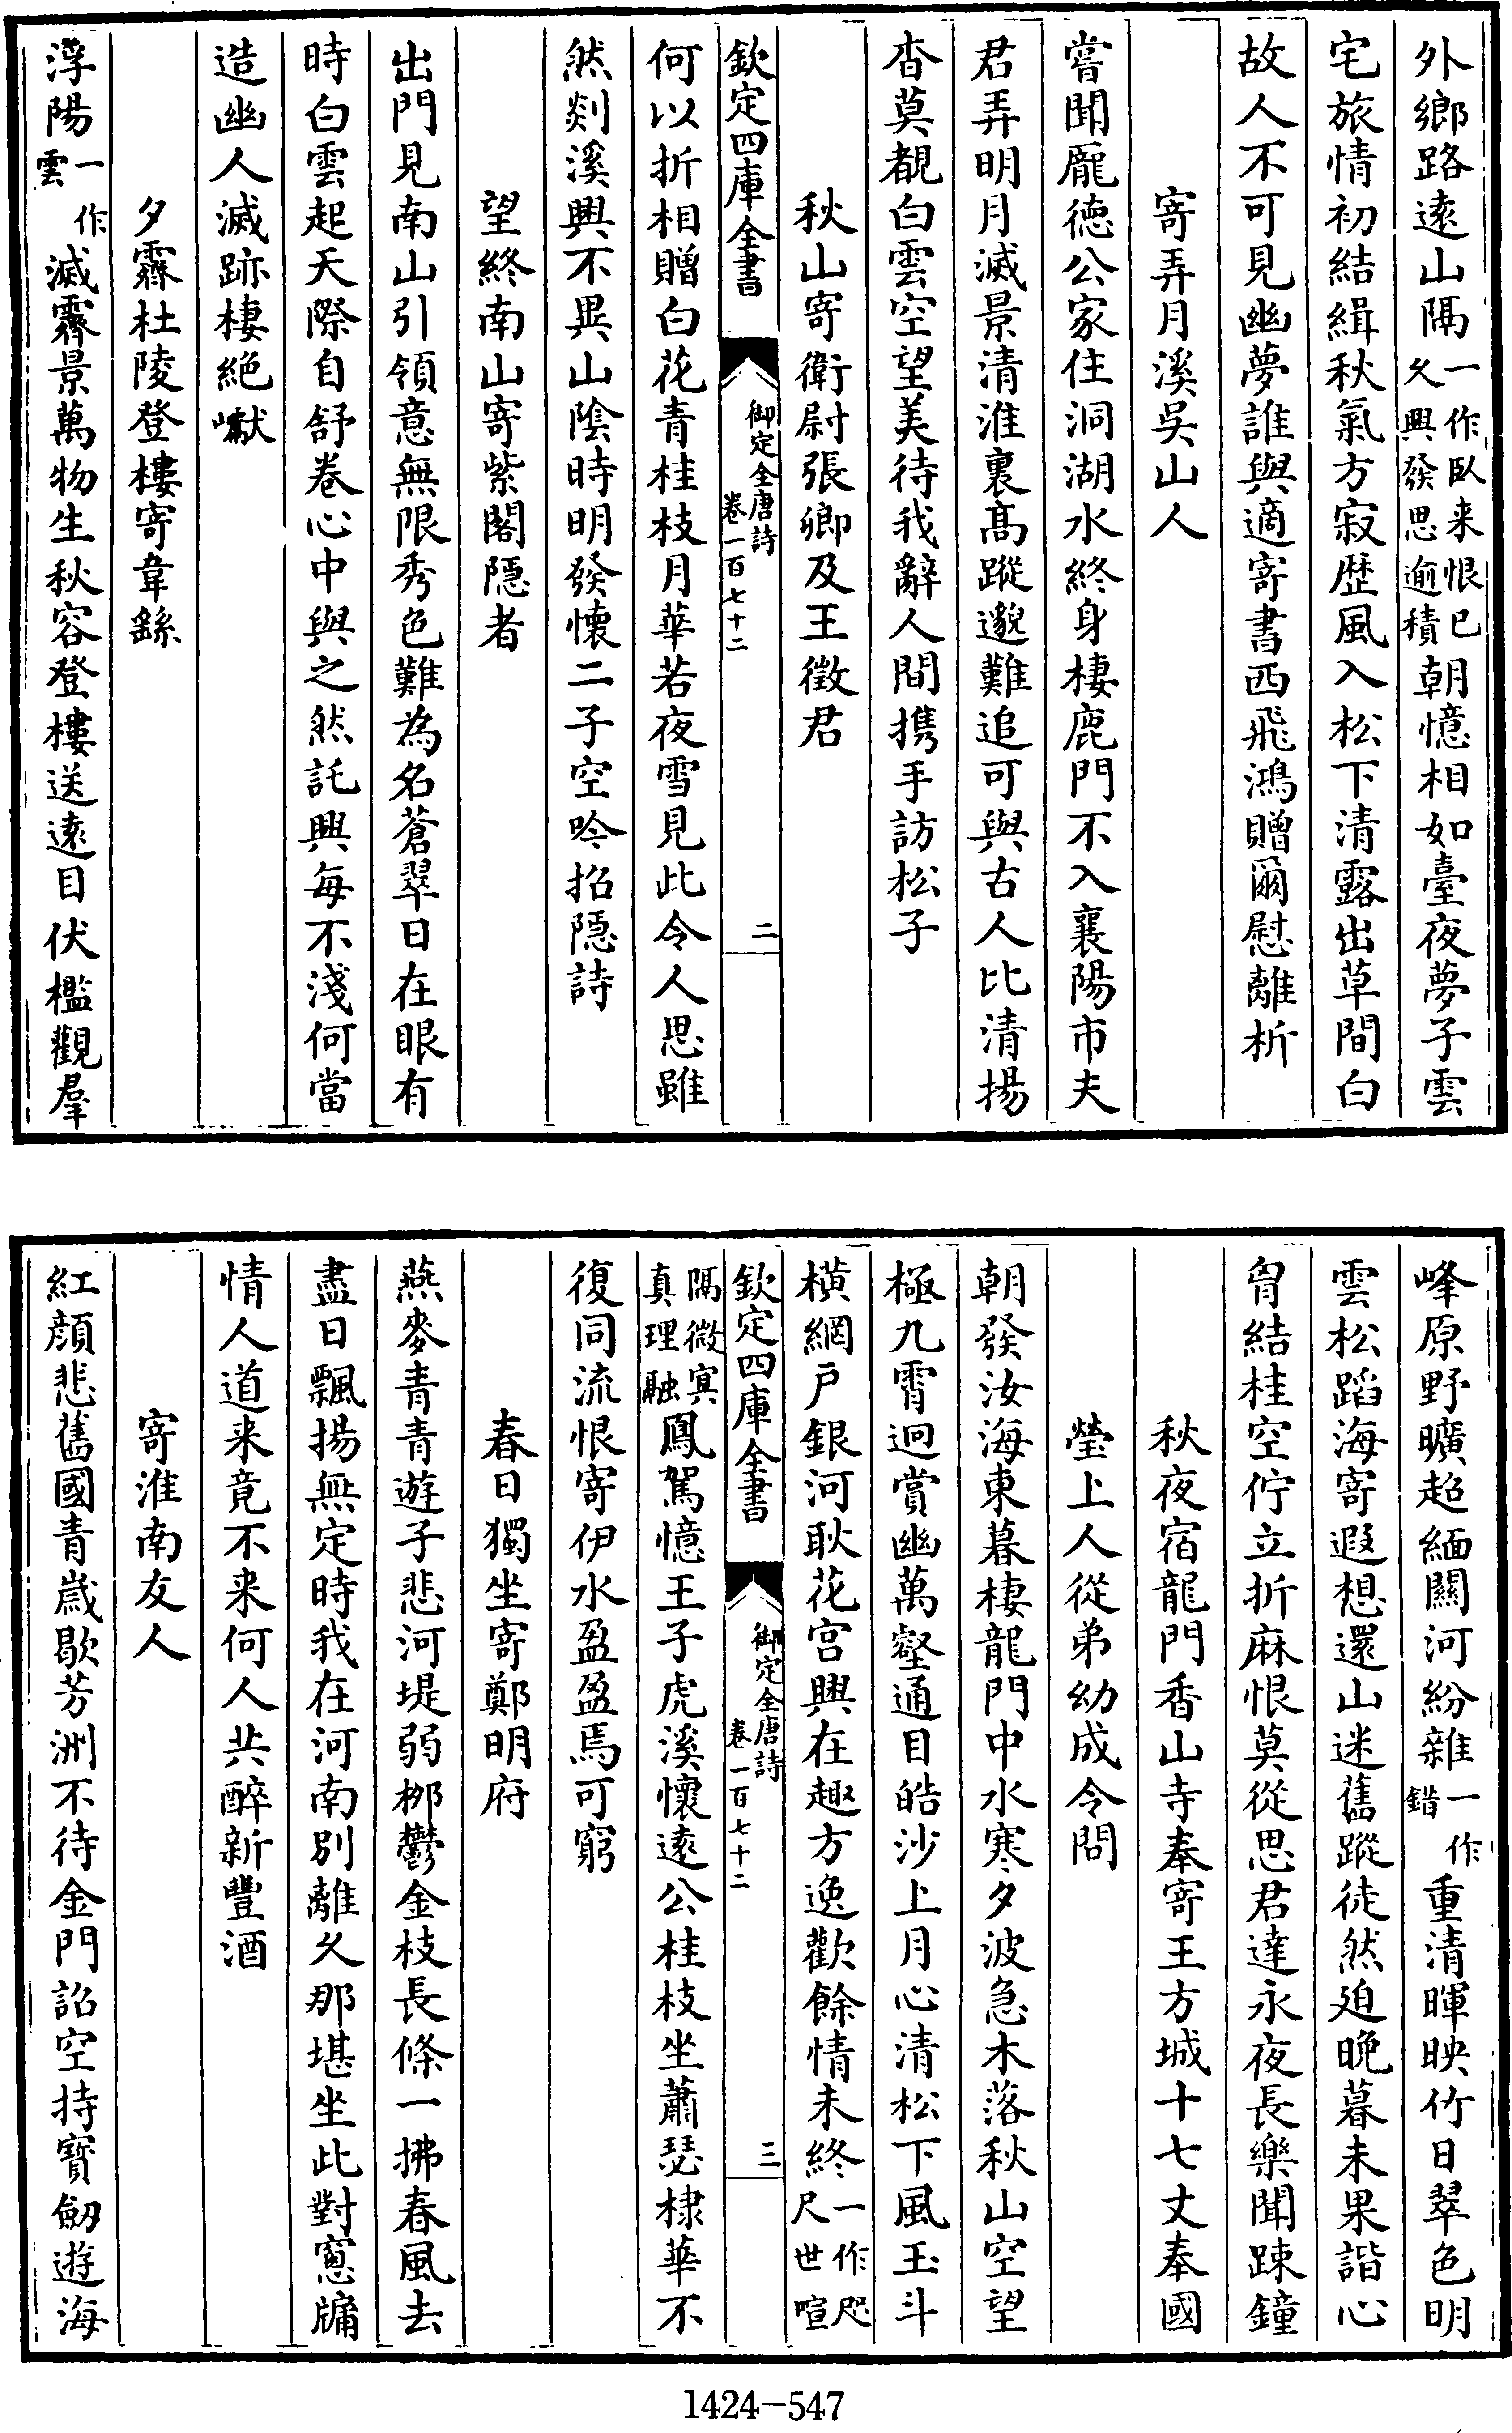 外鄉路遠山隅一作臥来恨已久興發思逾積朝憶相如臺夜夢子雲
宅旅情初結緝秋氣方寂歴風入松下清露出草間白
故人不可見幽夢誰與適寄書西飛鴻贈爾慰離析
寄弄月溪吳山人
嘗聞龎徳公家住洞湖水終身棲鹿門不入襄陽市夫
君弄明月滅景清淮裏髙蹤邈難追可與古人比清揚
杳莫覩白雲空望美待我辭人間携手訪松子
秋山寄衛尉張卿及王徵君
欽定四庫全書 御定全唐詩卷一百七十二 二
何以折相贈白花青桂枝月華若夜雪見此令人思雖
然剡溪興不異山隂時明發懐二子空吟招隠詩
望終南山寄紫閣隠者
出門見南山引領意無限秀色難為名蒼翠日在眼有
時白雲起天際自舒卷心中與之然託興每不淺何當
造幽人滅跡棲絶巘
夕霽杜陵登樓寄韋繇
浮陽一作雲滅霽景萬物生秋容登樓送遠目伏檻觀羣
峰原野曠超緬闗河紛雜一作錯重清暉映竹日翠色明
雲松蹈海寄遐想還山迷舊蹤徒然廹晚暮未果諧心
胷結桂空佇立折麻恨莫從思君達永夜長樂聞踈鐘
秋夜宿龍門香山寺奉寄王方城十七丈奉國
瑩上人從弟幼成令問
朝發汝海東暮棲龍門中水寒夕波急木落秋山空望
極九霄迥賞幽萬壑通目皓沙上月心清松下風玉斗
横網戸銀河耿花宫興在趣方逸歡餘情未終一作咫尺世喧
隔微㝠真理融鳳駕憶王子虎溪懐逺公桂枝坐蕭瑟棣華不
復同流恨寄伊水盈盈焉可窮
春日獨坐寄鄭明府
燕麥青青遊子悲河堤弱栁鬱金枝長條一拂春風去
盡日飄揚無定時我在河南别離久那堪坐此對窻牖
情人道来竟不来何人共醉新豐酒
寄淮南友人
紅顔悲舊國青歳歇芳洲不待金門詔空持寳劒遊海
欽定四庫全書 御定全唐詩卷一百七十二 三
1424-547